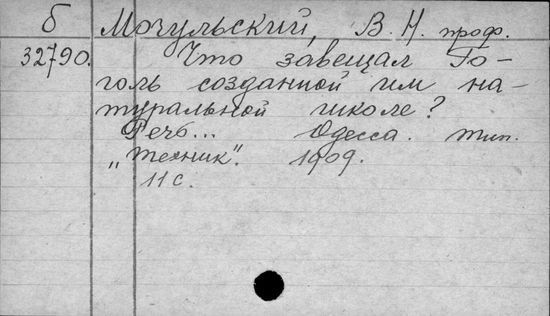 б Мочульский, В. Н. проф.
32790. Что завещал Го-
голь созданной им на-
туральной школе?
Речь... Одесса. Тип.
„Техник". 1909.
11 с.